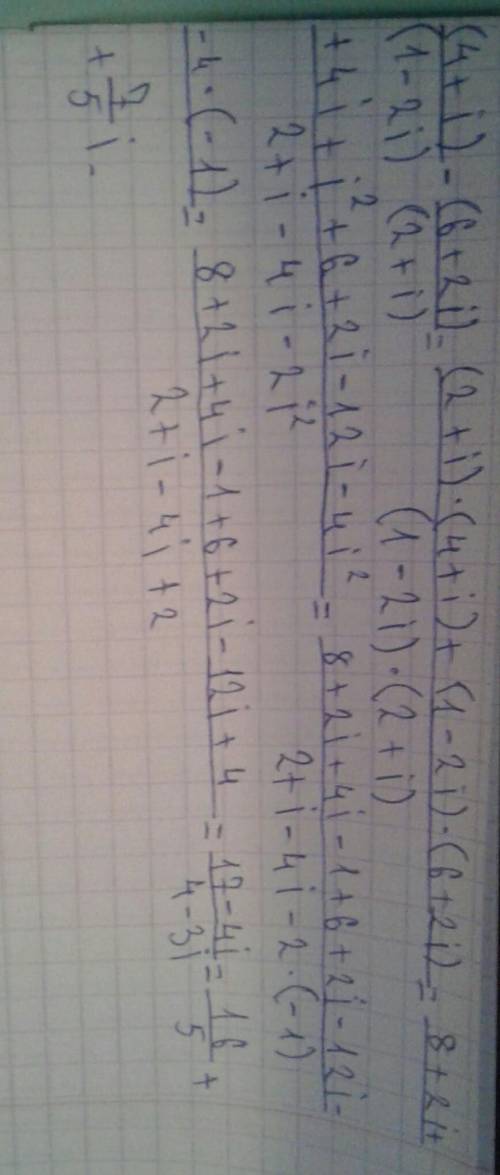 (4+i)/(1-2i) - (6+2i)/(2+i) = ((2+i)·(4+i)+(1-2i)·(6+2i))/((1-2i)·(2+i)) = 8+2i+
(+4i+i²+6+2i-12i-4i²)/(2+i-4i-2i²) = (8+2i+4i-1+6+2i-12i-)/(2+i-4i-2·(-1))
-4·(-1) = (8+2i+4i-1+6+2i-12i+4)/(2+i-4i+2) = (17-4i)/(4-3i) = 16/5 +
+ 7/5 i.